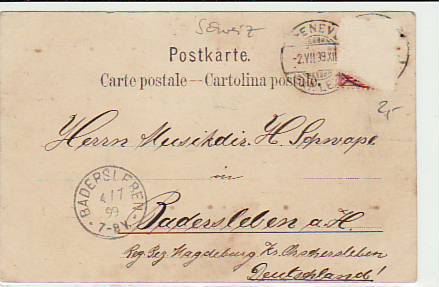 Schweiz
GENEV
-2.VII.99.XII
Postkarte.
Carte postale — Cartolina postale.
2,-
Herrn Musikdir. H. Schwape
in
BADERSLEBEN
4 / 7
99
7-8V.
Badersleben a. H.
Reg. Bez. Magdeburg Kr. Oschersleben
Deutschland!